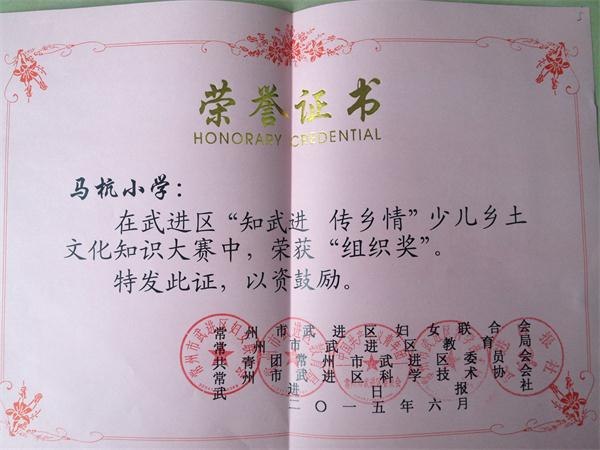 荣誉证书
HONORARY CREDENTIAL
马杭小学：
在武进区“知武进 传乡情”少儿乡土
文化知识大赛中，荣获“组织奖”。
特发此证，以资鼓励。
常州市武进区妇女联合会
常州市武进区教育局
共青团常州市武进区委员会
常州市武进区科学技术协会
武进日报社
二〇一五年六月